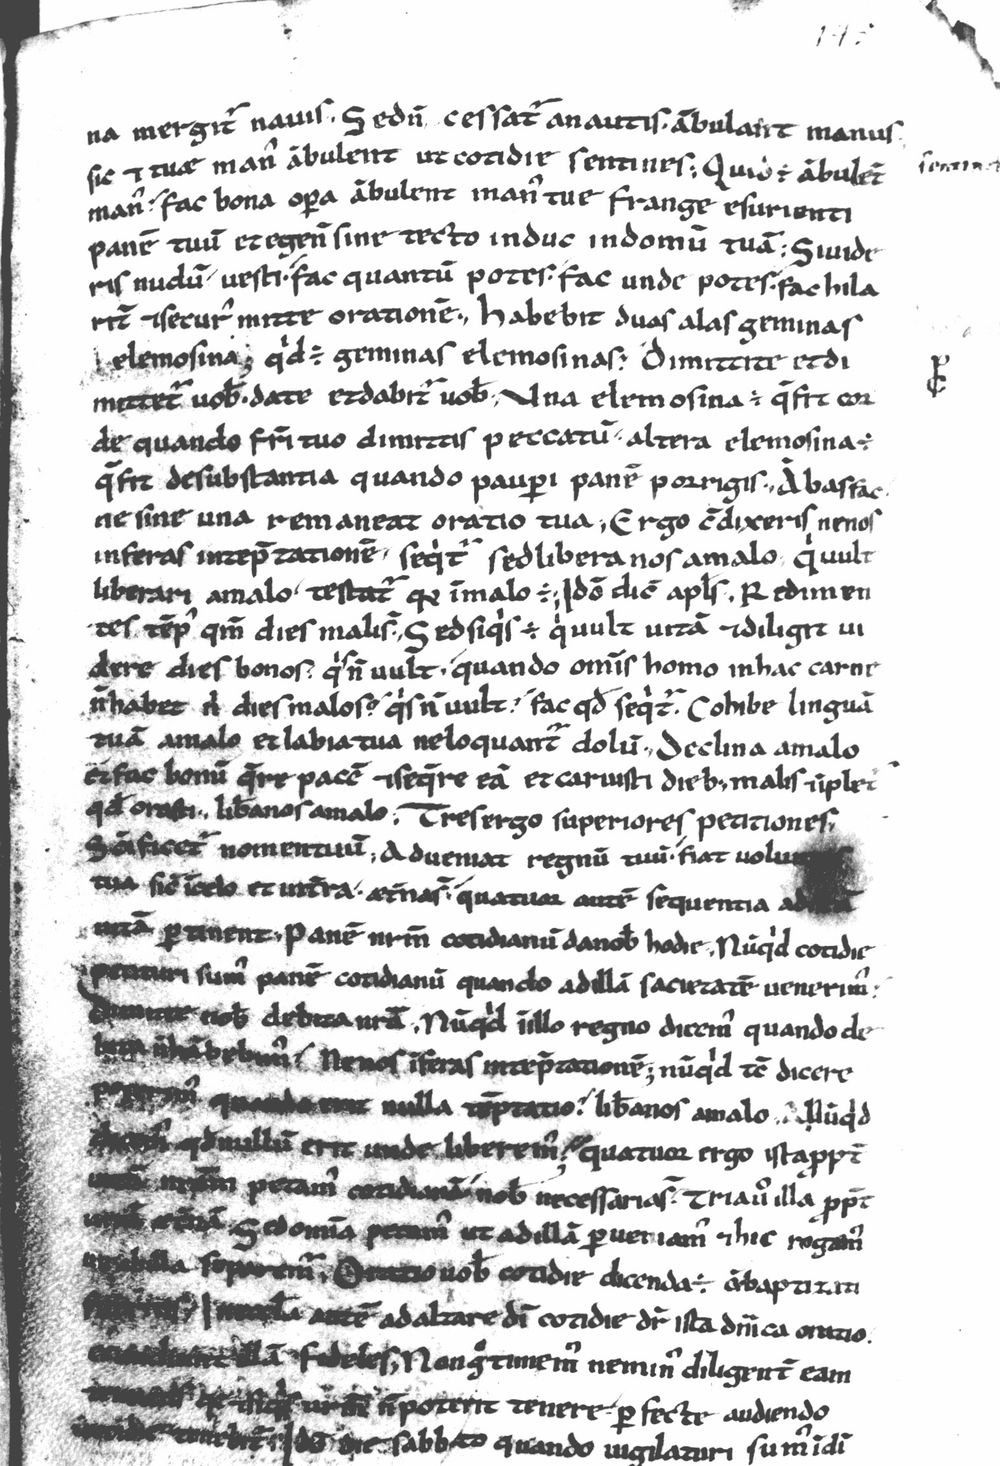 na mergit᷑ nauis. Sed n̄ cessat᷑ a nautis. ābulant manus
sic ⁊ tuæ man᾽ ābulent ut cotidie sentines; Quid ÷ ābulet̄
man᾽? fac bona opa ābulent man᾽ tue frange esurienti
panē tuū et egen̄ sine tecto induc in domū tuā; Si uide
ris nudū uesti. fac quantū potes. fac unde potes. fac hila
rit̄ ⁊ secur᾽ mitte orationē. habebit duas alas geminas
elemosina; qd ÷ geminas elemosinas? Dimittite et di
mittet᷑ uob̄. date et dabit᷑ uob̄. Una elemosina ÷ q̄ fit cor
de quando fr̄i tuo dimittis peccatū. altera elemosina ÷
q̄ fit de substantia quando paupi panē porrigis. Ābas fac
ne sine una remaneat oratio tua. Ergo c̄ dixeris ne nos
inferas in tēp̄tationē seqit᷑ sed libera nos a malo. qi uult
liberari a malo testat᷑ qr̄ ī malo ÷. Idō dic̄ apl̄s. Redimen
tes tēp᾽ qm̄ dies mali s̄. Sed siqis ÷ qi uult uitā ⁊ diligit ui
dere dies bonos? qis n̄ uult. quando om̄is homo in hac carne
n̄ habet n᾽ dies malos? qis n̄ uult? fac qd̄ seqit᷑. Cohibe linguā
tuā a malo et labia tua ne loquant᷑ dolū. Declina a malo
et fac bonū q̄re pacē ⁊ seq̄re eā et caruisti dieb᾽ malis ⁊ īplet᷑
qd̄ orasti. lib̄a nos a malo. Tres ergo superiores petitiones.
Sc̄ificet᷑ nomen tuū, Adueniat regnū tuū. fiat uoluntas
tua sic̄ ī celo et in t̄ra. æt̄nas᷑. quatuor autē sequentia ad istā
uitā ptinent. Panē nrm̄ cotidianū da nob̄ hodie. Nūqd cotidie
petituri sum᾽ panē cotidianū quando ad illā sacietatē uenerim᾽?
Dimitte nob̄ debita nrā. Nūqd ī illo regno dicem᾽ quando de
bita n̄ habebim᾽? Ne nos īferas in tēp̄tationē; nūqd tc̄ dicere
poterim᾽ quando erit nulla tēptatio? lib̄a nos a malo. Nūqd
dicem᾽ qd̄ nullū erit unde liberem᾽? quatuor ergo ista pp̄t
uitā nrām petam᾽ cotidianā nob̄ necessarias᷑. Tria u᾽ illa pp̄t
uitā æt̄nā. Sed omīa petam᾽ ut ad illā pueniam᾽ ⁊ hic rogam᾽
ne ab illa separem᾽. Oratio uob̄ cotidie dicenda ÷ c̄ baptizati
fueritis. In eccl̄a autē ad altare dī cotidie dr̄ ista dm̄ca oratio.
et audiunt illā fideles. Non gͦ timem᾽ ne min᾽ diligent̄ eam
teneatis qr̄ ⁊ siqis ur̄m n̄ poterit tenere pfecte audiendo
cotidie tenebit. Idō die sabb̄to quando uigilaturi sum᾽ ī dī